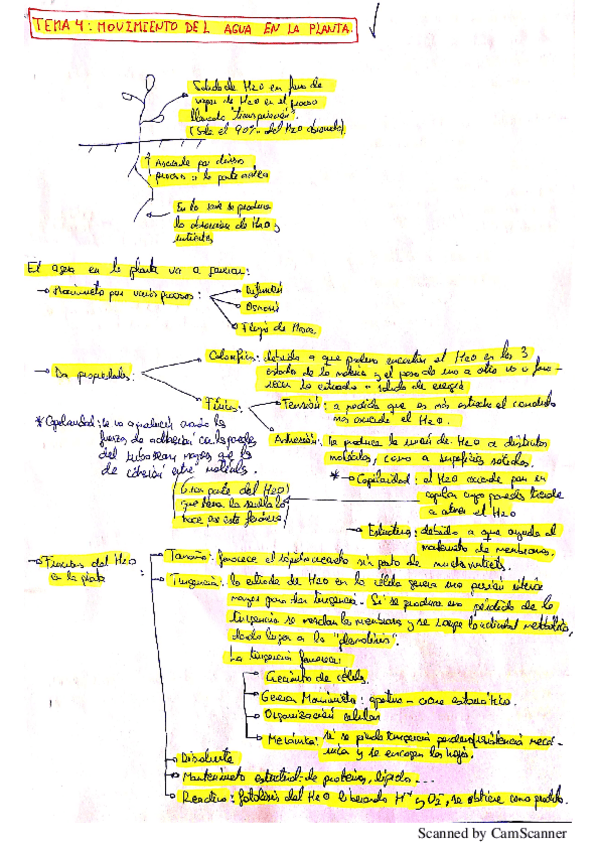 TEMA 4: MOVIMIENTO DEL AGUA EN LA PLANTA.
Salida de H2O en forma de
vapor de H2O en el proceso
llamado "transpiración".
(Sale el 90% del H2O absorbida).
Asciende por diversos
procesos a la parte aérea
En la raíz se produce
la absorción de H2O y
nutrientes
El agua en la planta va a poseer:
→ Movimiento por varios procesos:
Difusión
Osmosis
Flujo de Masa.
→ Da propiedades:
Caloríficas: debido a que podemos encontrar el H2O en los 3
estados de la materia y el paso de uno a otro va a
la entrada o salida de energía
Físicas:
Tensión: a medida que es más estrecho el conducto
más asciende el H2O.
Adhesión: Se produce la unión de H2O a distintas
moléculas, como a superficies sólidas.
* Capilaridad: se va a producir cuando las
fuerzas de adhesión con las paredes
del tubo sean mayores que las
de cohesión entre moléculas.
* → Capilaridad: el H2O asciende por un
capilar cuyas paredes tienden
a atraer el H2O
Gran parte del H2O
que llena la semilla lo
hace por este fenómeno
→ Estructura: debido a que ayuda al
mantenimiento de membranas.
→ Funciones del H2O
en la planta
Tamaño: favorece el rápido crecimiento sin gasto de muchos nutrientes.
Turgencia: la entrada de H2O en la célula genera una presión interior
mayor para dar turgencia. Si se produce una pérdida de la
turgencia se rompen las membranas y se rompe la actividad metabólica,
dando lugar a la "plasmólisis".
La turgencia favorece:
Crecimiento de células.
Generar Movimientos: apertura - cierre estomático.
Organización celular
Mecánica: si se pierde turgencia pierden resistencia mecá-
nica y se encogen las hojas.
Disolvente
Mantenimiento estructural: de proteínas, lípidos...
Reactivo: fotolisis del H2O liberando H+ y O2, se obtiene como producto.
Scanned by CamScanner